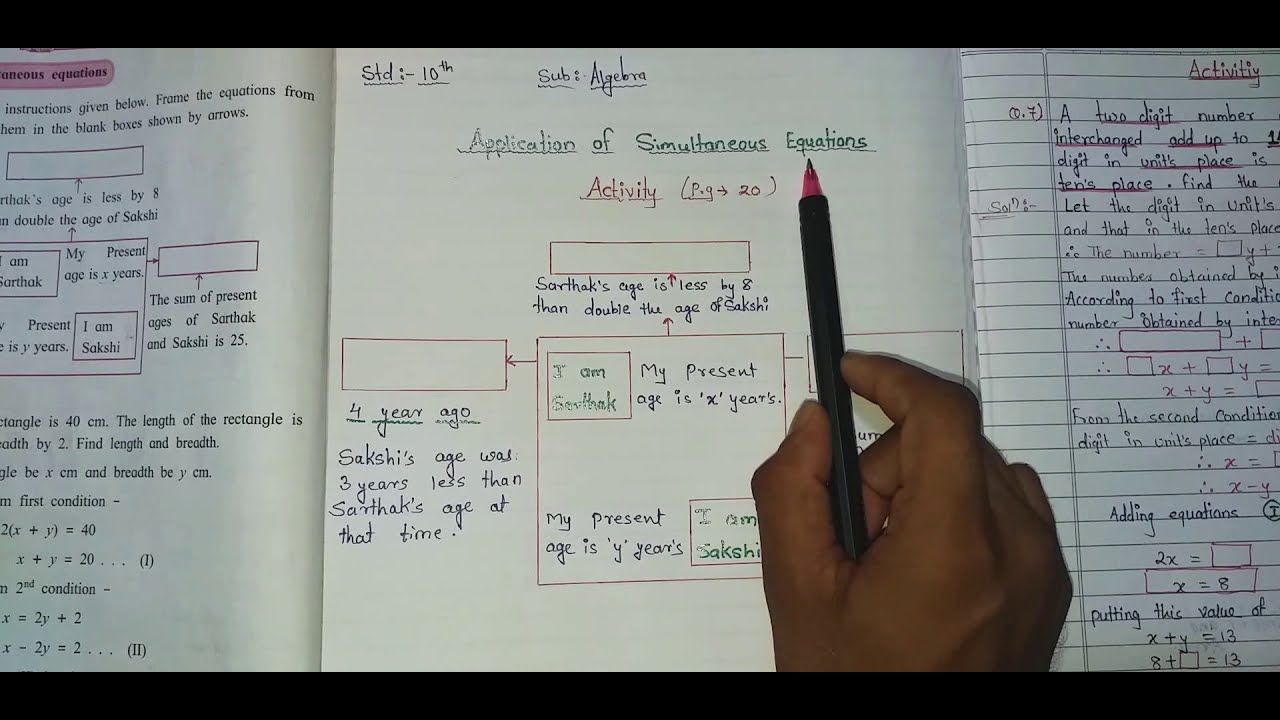 taneous equations
instructions given below. Frame the equations from
hem in the blank boxes shown by arrows.
rthak's age is less by 8
n double the age of Sakshi
I am
Sarthak
My Present
age is x years.
The sum of present
ages of Sarthak
and Sakshi is 25.
y Present
e is y years.
I am
Sakshi
ctangle is 40 cm. The length of the rectangle is
eadth by 2. Find length and breadth.
gle be x cm and breadth be y cm.
m first condition –
2(x + y) = 40
x + y = 20 . . . (I)
m 2nd condition –
x = 2y + 2
x – 2y = 2 . . . (II)
Std :- 10th Sub :- Algebra
Application of Simultaneous Equations
Activity (P.g → 20)
Sarthak's age is less by 8
than double the age of Sakshi
I am
Sarthak
My Present
age is 'x' year's.
4 year ago
Sakshi's age was
3 years less than
Sarthak's age at
that time.
My present
age is 'y' year's
I am
Sakshi
um
Activitiy
Q.7) A two digit number
interchanged add up to
digit in unit's place is
ten's place. find the
Soln:- Let the digit in unit's
and that in the ten's place
∴ The number = □ y +
The number obtained by
According to first conditio
number obtained by inter
∴ □ + □
∴ □ x + □ y =
x + y = □
From the second condition
digit in unit's place = di
∴ x = □
∴ x - y
Adding equations (I)
2x = □
x = 8
putting this value of
x + y = 13
8 + □ = 13